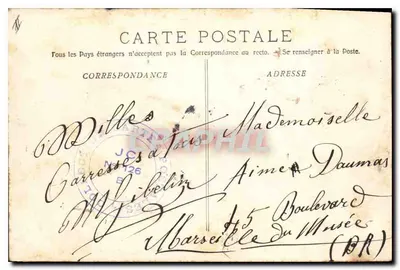 CARTE POSTALE
Tous les Pays étrangers n'acceptent pas la Correspondance au recto. - Se renseigner à la Poste.
CORRESPONDANCE
ADRESSE
Milles
Carresses a tous
M Gibelin
Mademoiselle
Aimée Daumas
45 Boulevard
du Musée
Marseille
(BR)
126